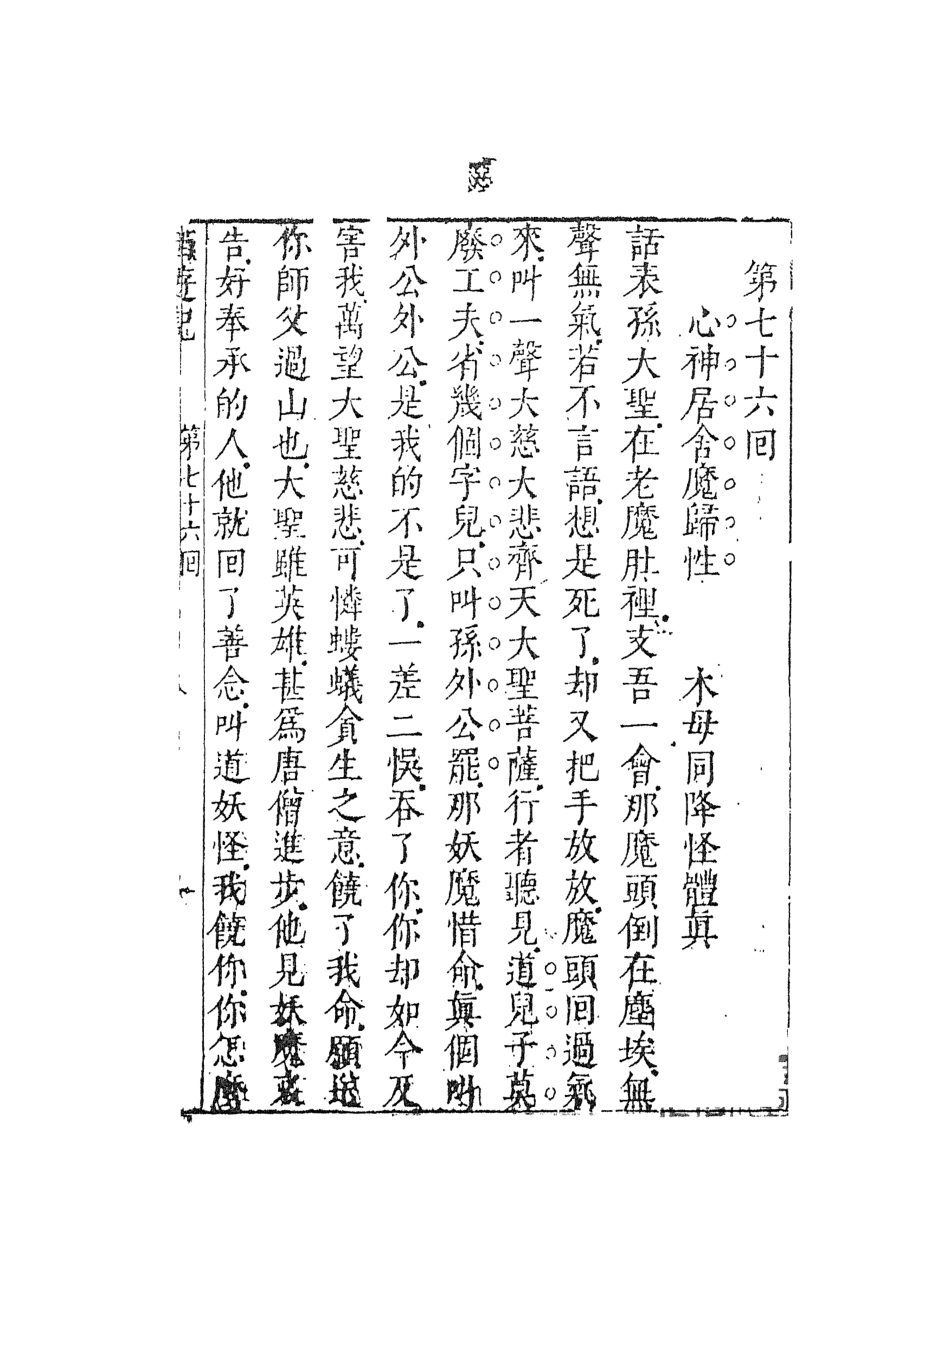 第七十六回
心神居舍魔歸性　木母同降怪體眞
話表孫大聖在老魔肚裡支吾一會那魔頭倒在塵埃無
聲無氣若不言語想是死了却又把手放放魔頭回過氣
來叫一聲大慈大悲齊天大聖菩薩行者聽見道兒子莫
廢工夫省幾個字兒只叫孫外公罷那妖魔惜命眞個叫
外公外公是我的不是了一差二悞吞了你你却如今反
害我萬望大聖慈悲可憐螻蟻貪生之意饒了我命願送
你師父過山也大聖雖英雄甚爲唐僧進步他見妖魔哀
告好奉承的人他就回了善念叫道妖怪我饒你你怎麼
西遊記　第七十六回